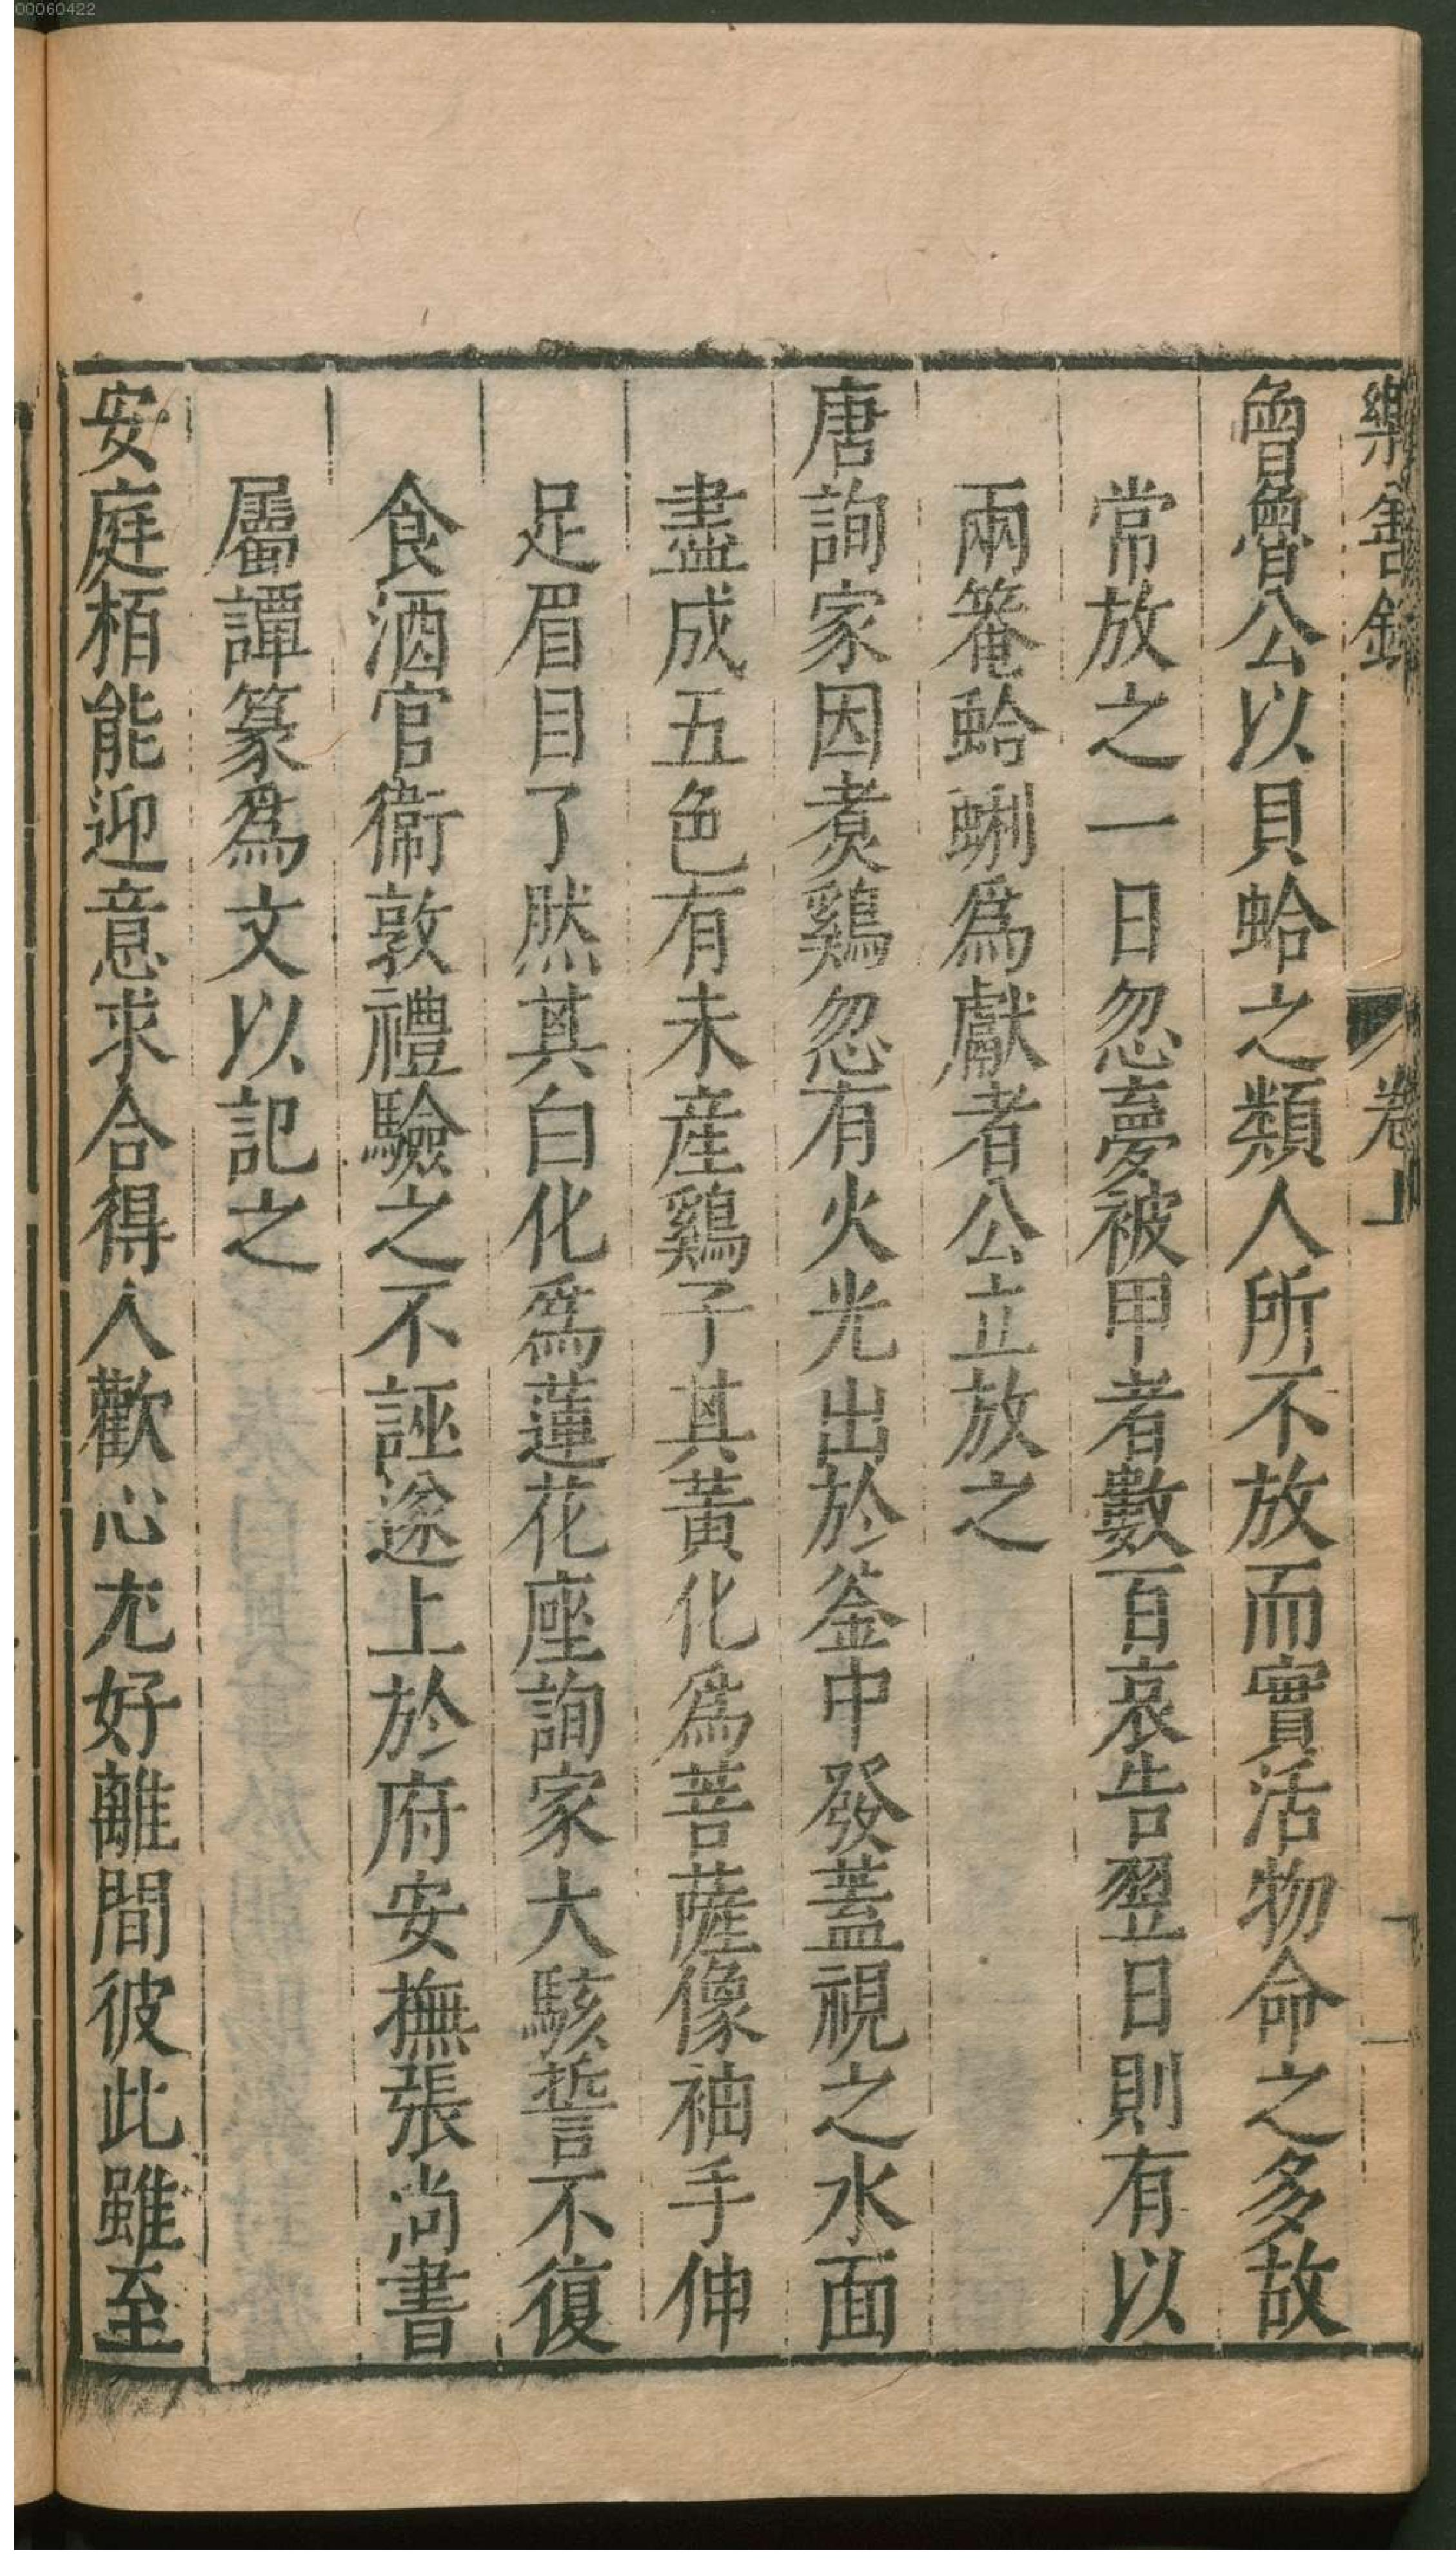 00060422
樂善錄 卷上
曾魯公以貝蛤之類人所不放而實活物命之多故
常放之一日忽夢被甲者數百哀告翌日則有以
兩菴蛤蜊爲獻者公立放之
唐詢家因煑鷄忽有火光出於釜中發蓋視之水面
盡成五色有未産鷄子其黃化爲菩薩像袖手伸
足眉目了然其白化爲蓮花座詢家大駭誓不復
食酒官衛敦禮驗之不誣遂上於府安撫張尚書
屬譚篆爲文以記之
安庭栢能迎意求合得人歡心尤好離間彼此雖至